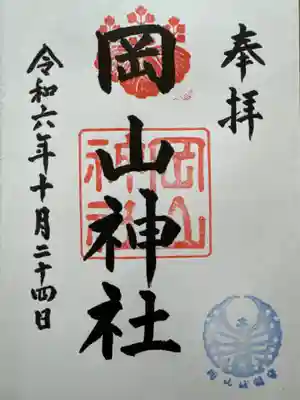 奉拝
岡山神社
岡山
神社
令和六年十月二十四日